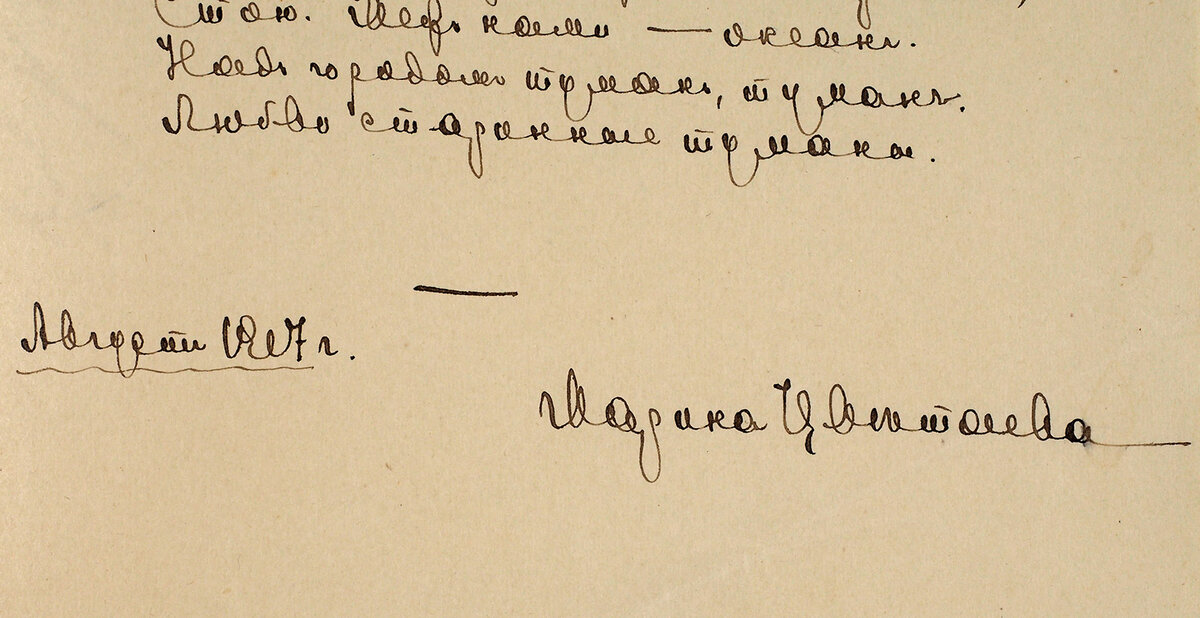 Стою. Межъ нами — океанъ.
Надъ городомъ туманъ, туманъ.
Любви старинные туманы.
Августъ 1917 г.
Марина Цвѣтаева